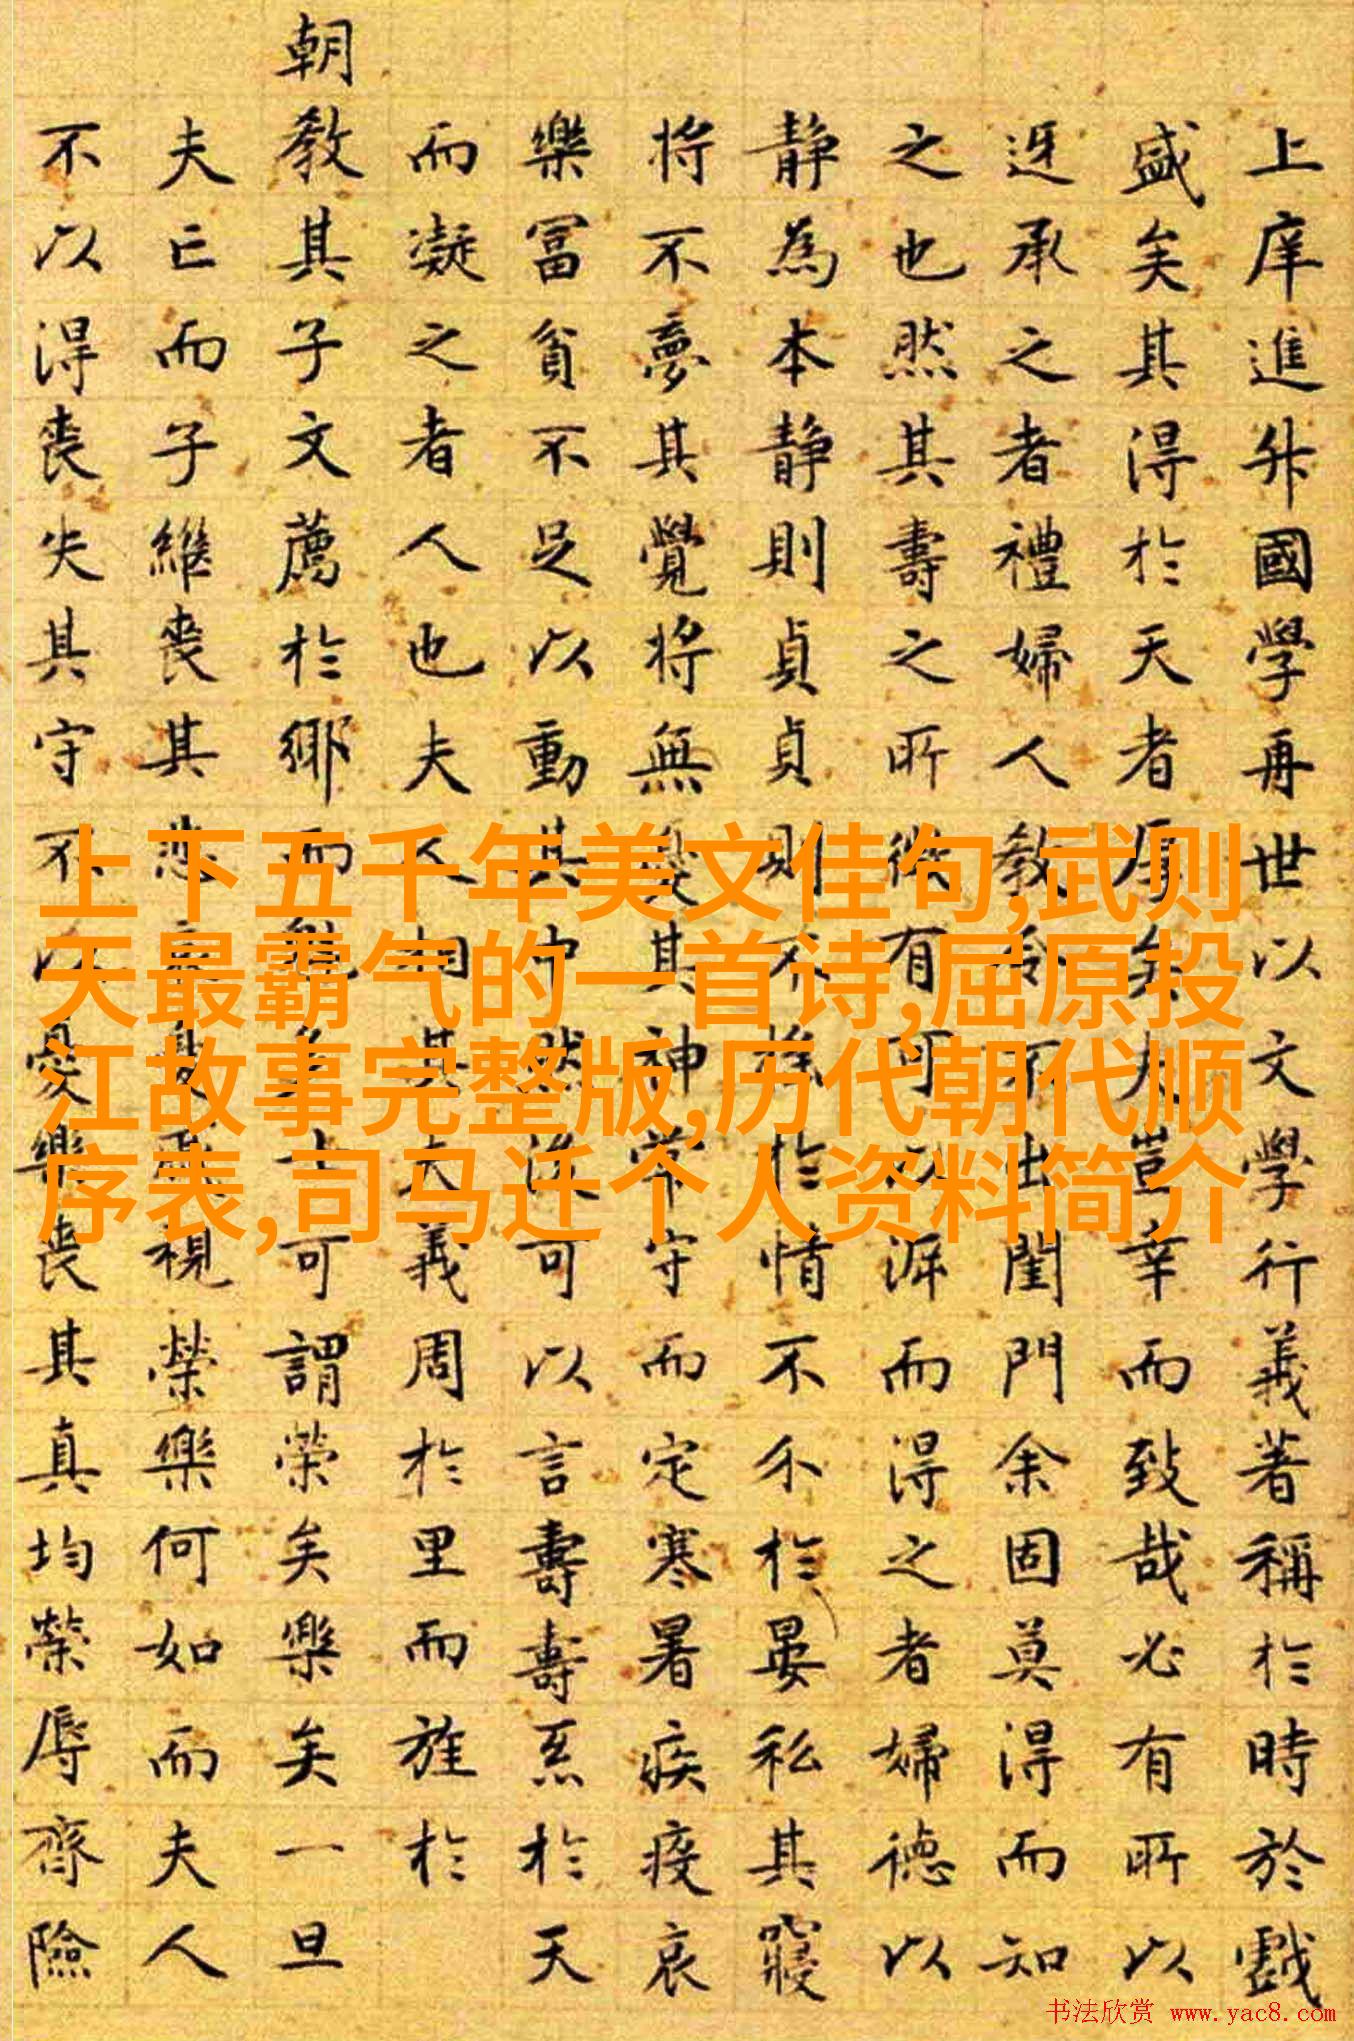 上庠進升國學再世以文學行義著稱於時於戲
盛矣其得於天者厚矣夫豈幸而致哉必有所以
迓承之者禮婦人教令不出閨門余固莫得而知
之也然其壽之所有可以涯而得之者婦德以
静為本静則貞貞則不於情不尒於晏私其寢
將不夢其覺將無憂其神常守而定寒暑疾疫哀
樂富貧不足以動其中然後可以言壽壽系於天
而凝之者人也夫人相其夫義周於里而旌於
朝教其子文薦於鄉而士可謂榮矣樂矣一旦
夫亡而子繼喪其悲哀憂戚視榮樂何如而夫人
不以得喪失其守不以憂樂喪其真均榮辱齊險
上下五千年美文佳句,武则
天最霸气的一首诗,屈原投
江故事完整版,历代朝代顺
序表,司马迁个人资料简介
书法欣赏 www.yac8.com